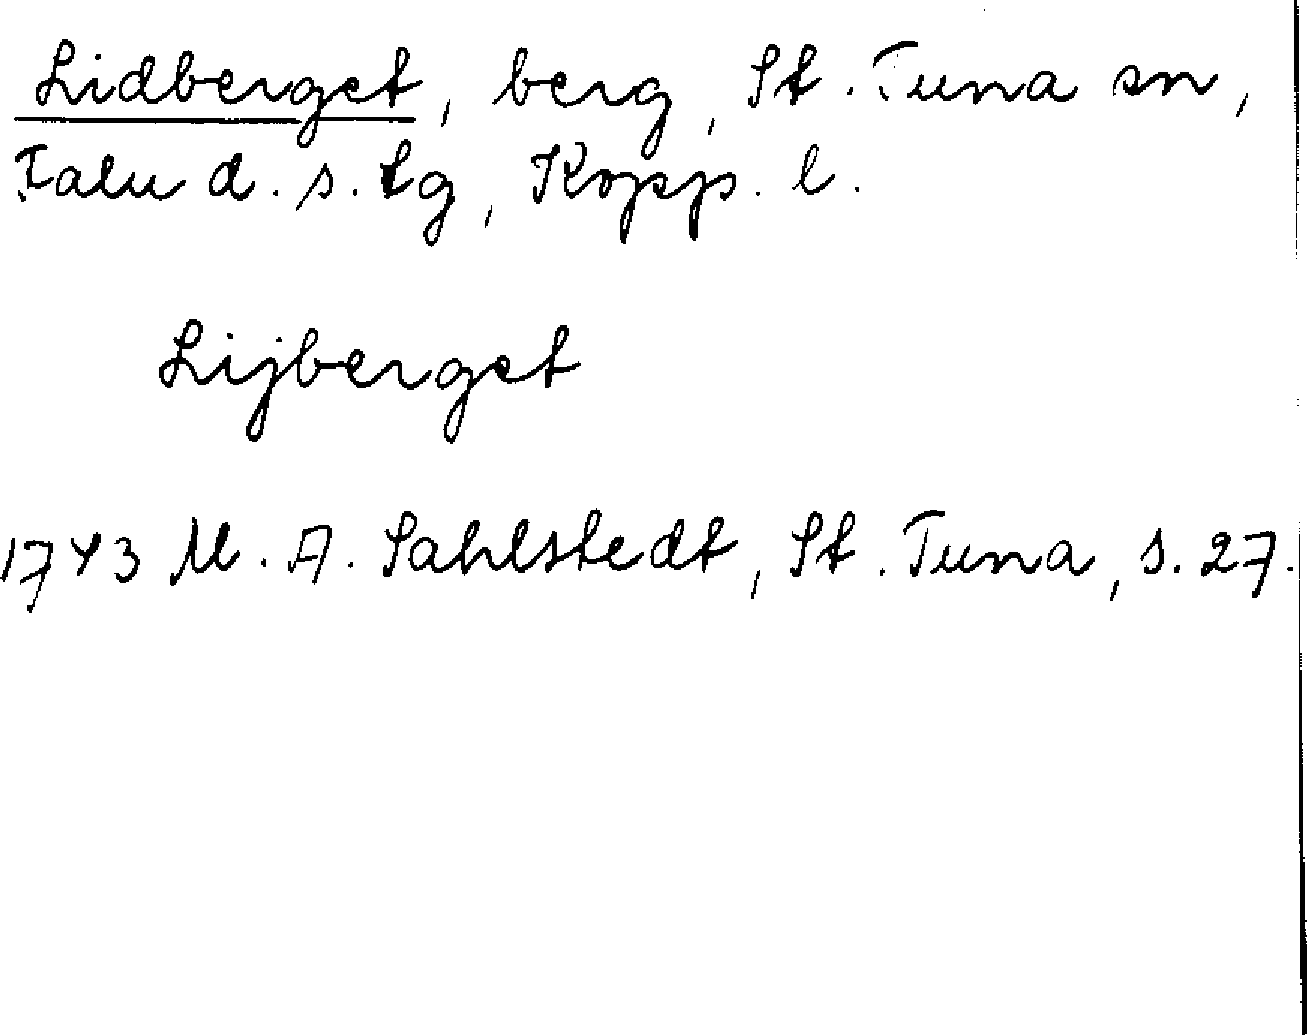 Lidberget, berg, St. Tuna sn,
Falu d. s. tg, Kopp. l.
Lijberget
1743 M. A. Sahlstedt, St. Tuna, s. 27.